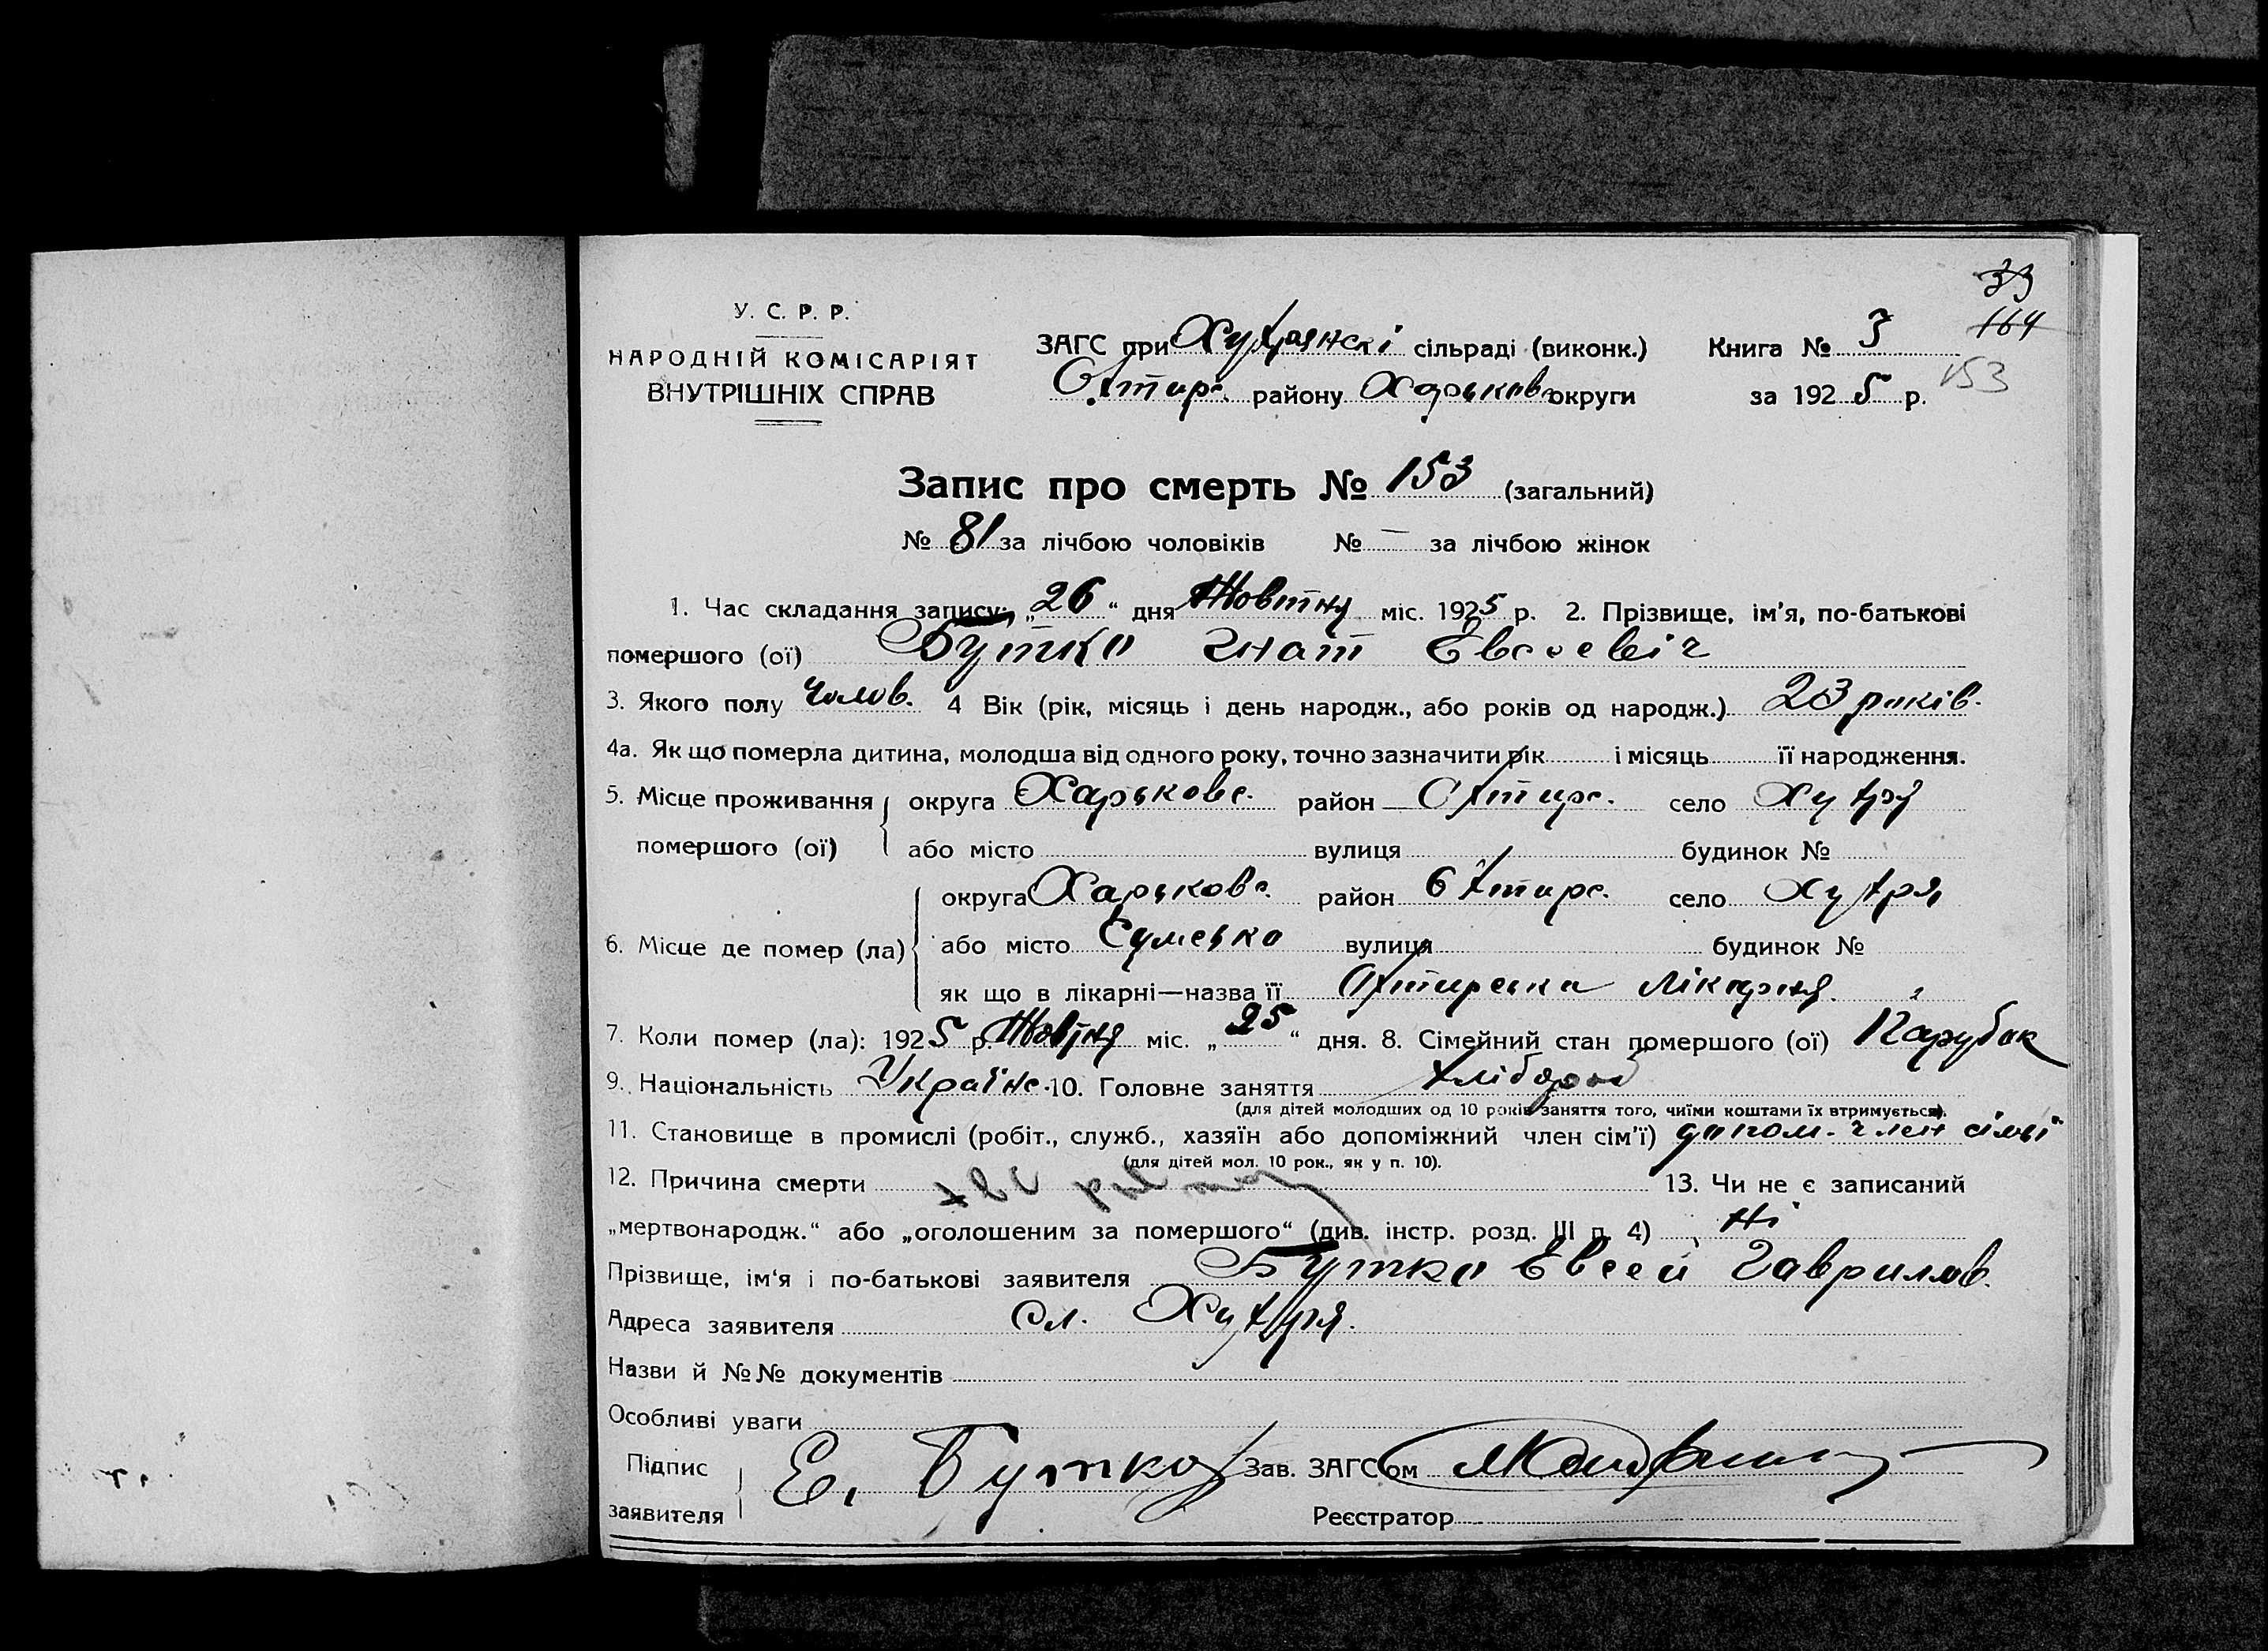 33
У. С. Р. Р.
НАРОДНІЙ КОМІСАРІЯТ
ВНУТРІШНІХ СПРАВ
ЗАГС при Хухрянскі сільраді (виконк.)
Охтирс. району Харьковс округи
Книга № 3
164
за 1925 р.
153
Запис про смерть № 153 (загальний)
№ 81 за лічбою чоловіків № — за лічбою жінок
1. Час складання запису: „26“ дня Жовтня міс. 1925 р. 2. Прізвище, ім'я, по-батькові
помершого (ої) Бутко Гнат Евсеевіч
3. Якого полу Чолов. 4 Вік (рік, місяць і день народж., або років од народж.) 23 років.
4а. Як що померла дитина, молодша від одного року, точно зазначити рік і місяць її народження.
5. Місце проживання помершого (ої) округа Харьковс. район Охтирс. село Хухря
або місто вулиця будинок №
6. Місце де помер (ла) округа Харьковс. район Охтирс. село Хухря
або місто Сумська вулиця будинок №
як що в лікарні—назва її Охтирська Лікарня.
7. Коли помер (ла): 1925 р. Жовтня міс. „25“ дня. 8. Сімейний стан помершого (ої) Парубок
9. Національність Українс. 10. Головне заняття хлібороб
(для дітей молодших од 10 років заняття того, чиїми коштами їх втримується).
11. Становище в промислі (робіт., служб., хазяїн або допоміжний член сім'ї) допом. член сімьї
(для дітей мол. 10 рок., як у п. 10).
12. Причина смерти 13. Чи не є записаний
„мертвонародж.“ або „оголошеним за помершого“ (див. інстр. розд. III п. 4) Ні
Прізвище, ім'я і по-батькові заявителя Бутко Евсей Гаврилов.
Адреса заявителя Сл. Хухря.
Назви й №№ документів
Особливі уваги
Підпис заявителя Е. Бутко Зав. ЗАГС'ом
Реєстратор